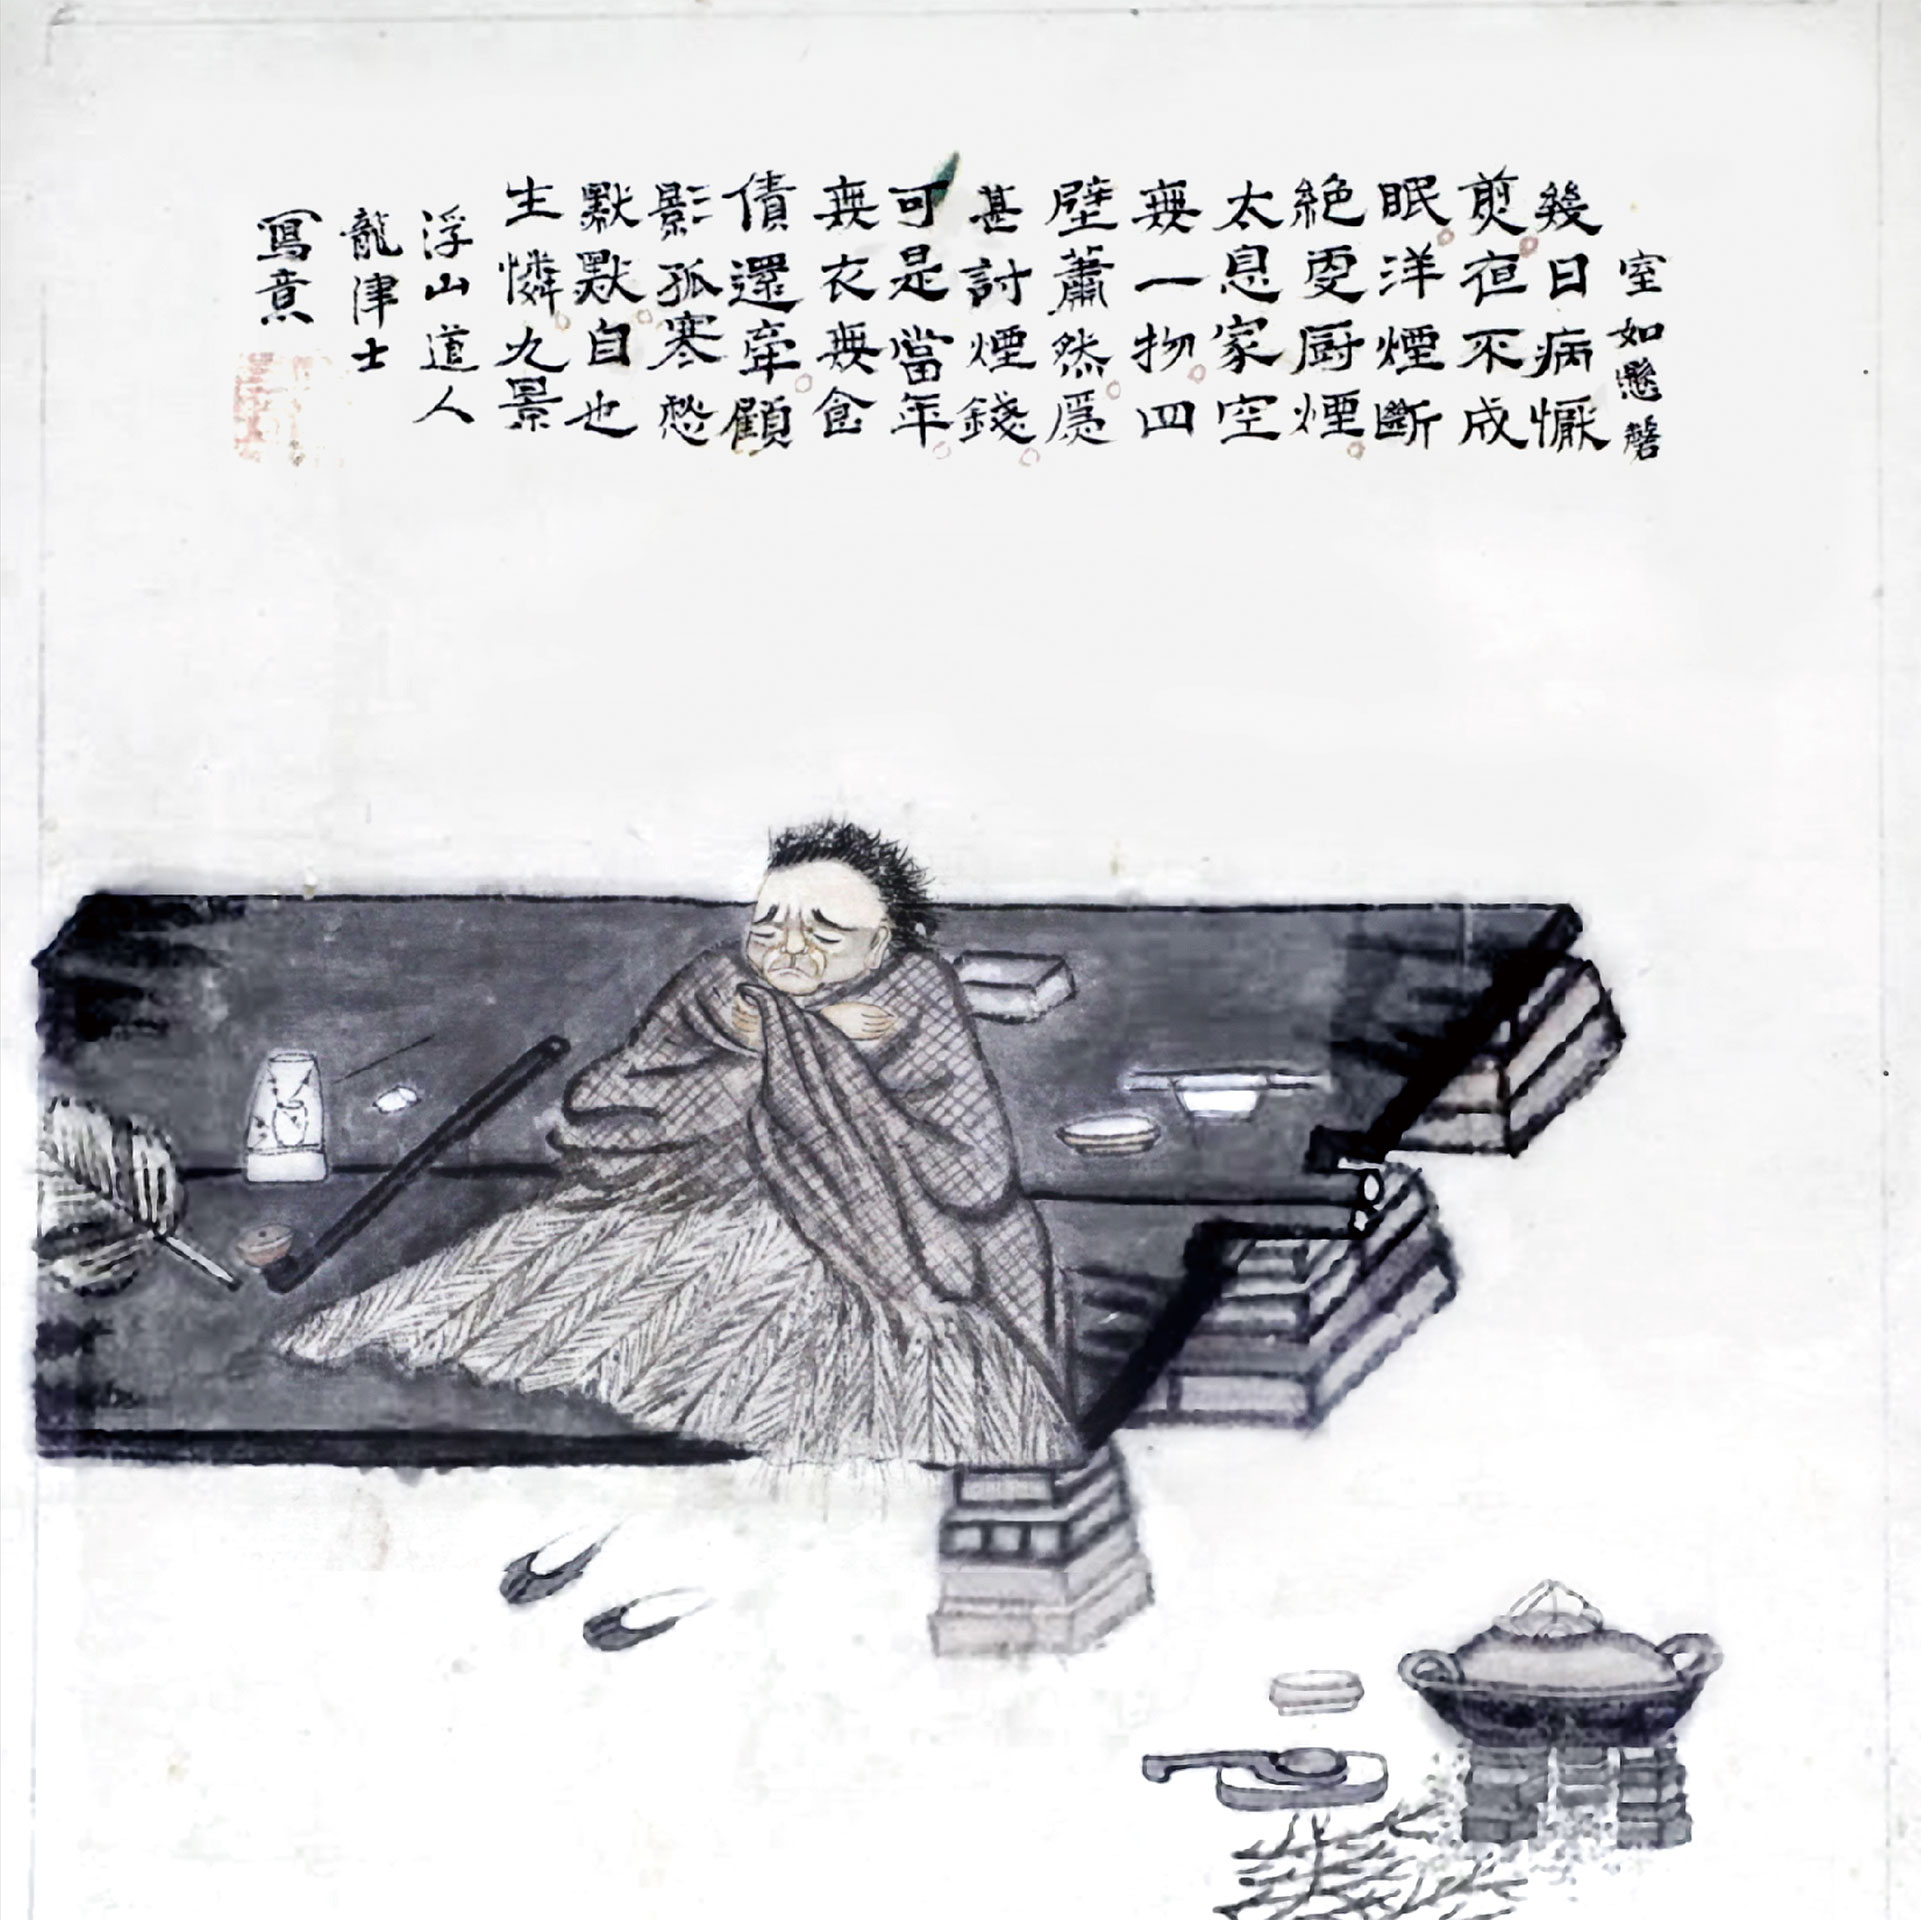 室如懸磬
幾日病懨
煎夜不成
眠洋煙斷
絕更厨煙
太息家空
無一物四
壁蕭然爲
甚討煙錢
可是當年
無衣無食
債還牽顧
影孤寒愁
默默自也
生憐九景
浮山道人
龍津士
寫意